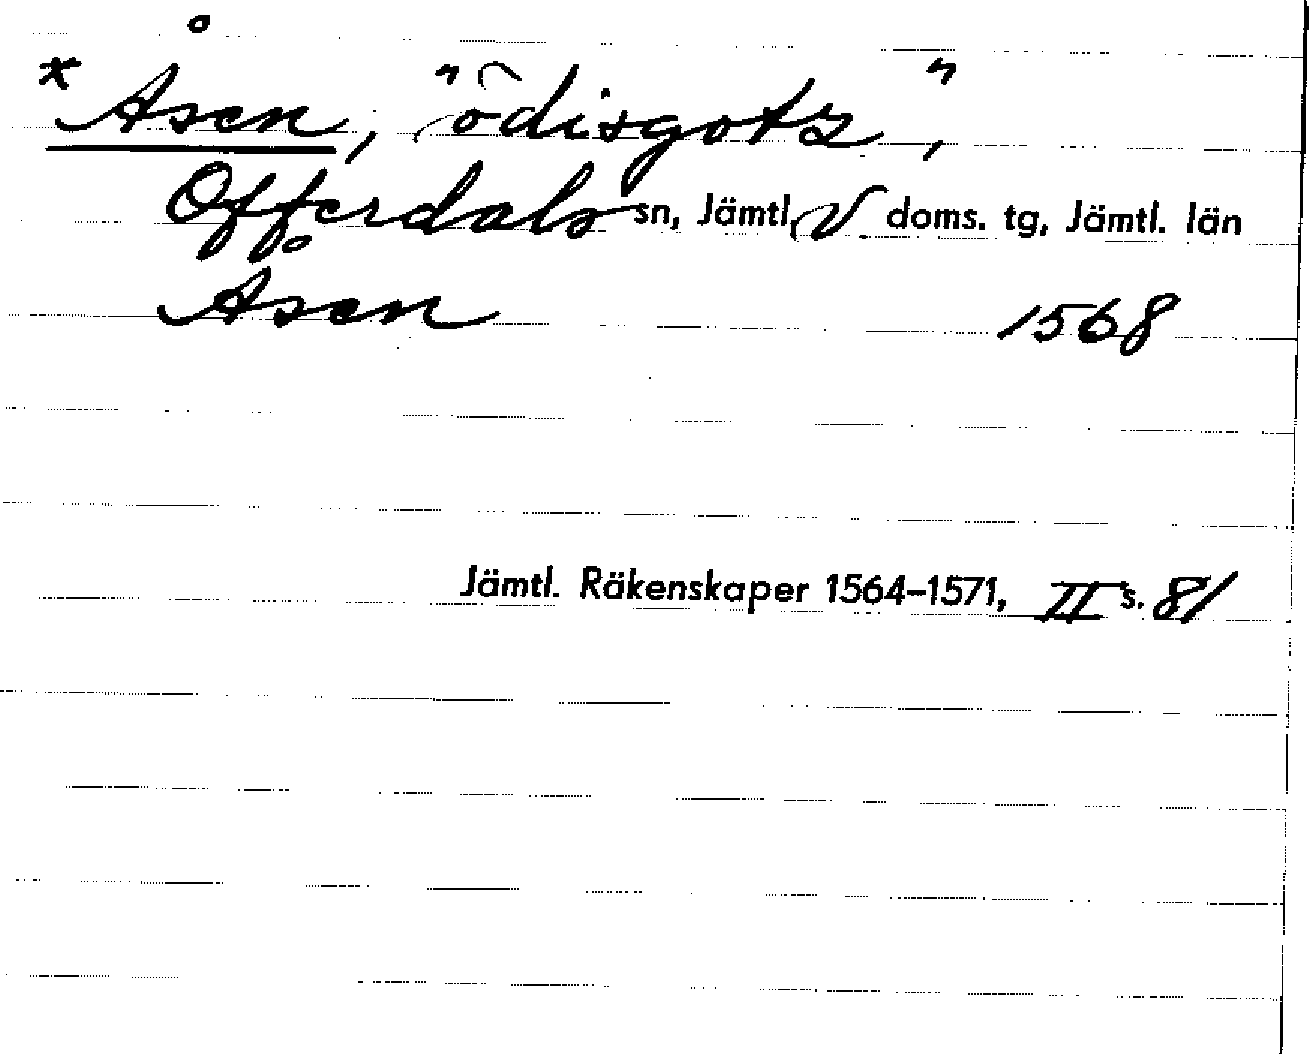 * Åsen, "ödisgotz",
Offerdals sn, Jämtl. V doms. tg, Jämtl. län
Åsen 1568
Jämtl. Räkenskaper 1564–1571, II s. 81